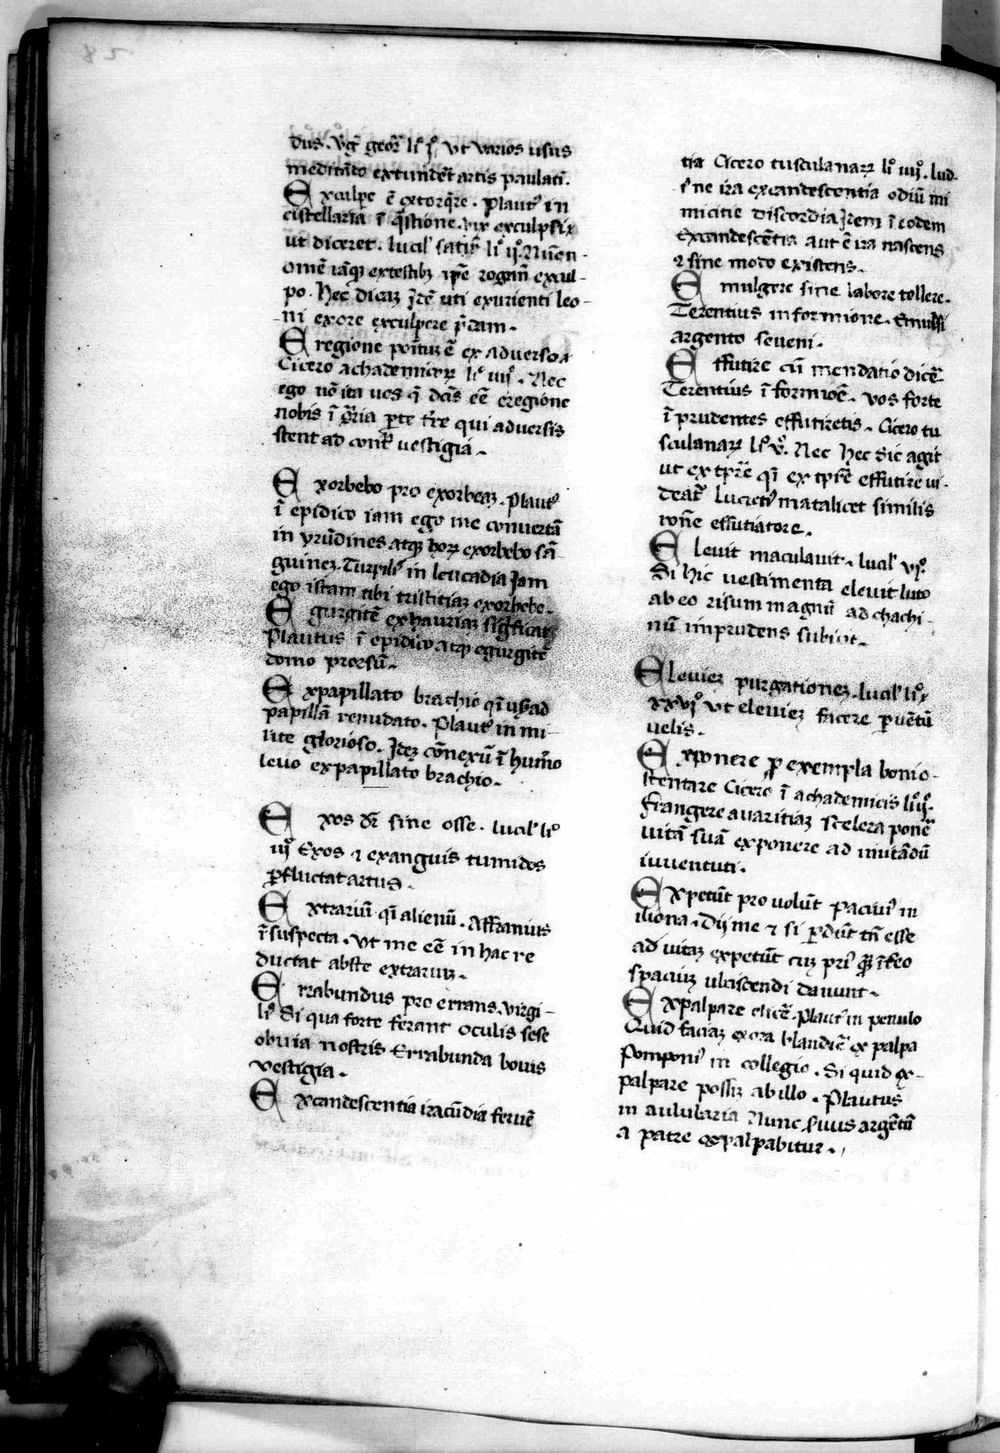 dus. vg̅ geor̅ li° j° ut varios usus
meditādo extundēt artis paulatī.
Exculpe ē extorq̄re. Plautꝰ in
cistellaria ī q̄stione. vix exculpsi
ut diceret. lucil' satir̅ li° ij°. Nūen
omē iāqꝫ extestibꝫ ip̅e rogan̅ excul
po. hec dicaꝫ uti exurienti leo-
ni exore exculpere p̄dam.
Eregione ponituꝫ ē ex adverso.
Cicero achademicoꝝ li° iiij°. Nec
ego nō ita uos qi dc̄is eē eregione
nobis ī q̄ria ꝑte tr̅e qui adversis
stent ad cont̄ vestigia.
Exorbebo pro exorbeaꝫ. Plautꝰ
ī epidico iam ego me convertā
in yrūdines atqꝫ hoꝝ exorbebo sā-
guineꝫ. Turpili° in leucadia Jam
ego istam tibi tristitiaꝫ exorbebo.
Egurgitē exhauriaꝫ sigficat
Plautus ī epidico atqꝫ egurgitē
domo prorsū.
Expapillato brachio qi usqꝫ ad
papillā renudato. Plautꝰ in mi-
lite glorioso. Ideꝫ cōnexū ī hum̄o
levo expapillato brachio.
Exos dr̄ sine osse. lucil' li°
iij° Exos ⁊ exanguis tumidos
ꝑfluctat artus.
Extrariū qi alienū. Affranius
ī suspecta. Ut me eē in hac re
ductat abste extrariuꝫ.
Errabundus pro errans. virgi-
li° Si qua forte ferant oculis sese
obvia nostris Errabunda bovis
vestigia.
Excandescentia iracūdia fervē
tia Cicero tusculanaꝝ li° iiij°. lud-
īne ira excandescentia odiū ini
micitie discordia Item ī eodem
Excandescētia aut ē ira nascens
⁊ sine modo existens.
Emulgere sine labore tollere.
Terentius in formione. Emulsi
argento seveni.
Effutire cū mendatio dicē.
Terentius ī formiōe. vos forte
īprudentes effutiretis. Cicero tu
sculanaꝝ li° v°. Nec hec sic agit
ut ex tpr̄e qi ex tpr̄e effutire vi-
deat̄ lucretiꝰ matalicet similis
ronē effutiatore.
Elevit maculavit. lucil' vj°
Si hic vestimenta elevit luto
ab eo risum magnū ad chachi-
nū imprudens subiit.
Elevieꝫ purgationeꝫ. lucil' li°
xxvj° ut elevieꝫ facere ꝑ uētū
velis.
Exponere ꝓ exempla boni o-
stentare Cicero ī achademicis li° ij°.
frangere avaritiaꝫ scelera ponē
vitā suā exponere ad imitādū
iuventuti.
Expetūt pro volūt Pacuviꝰ in
iliona. Dij me ⁊ si ꝑdūt tn̄ esse
ad vitaꝫ expetūt cuꝫ priꝰ qꝫ īteo
spaciuꝫ ulciscendi danunt.
Expalpare elicē. Plautꝰ in penulo
Quid faciaꝫ exora blandiē expalpa
Pomponiꝰ in collegio. Si quid ex-
palpare possiꝫ ab illo. Plautus
in aulularia Nunc suus argētū
a patre expalpabitur.